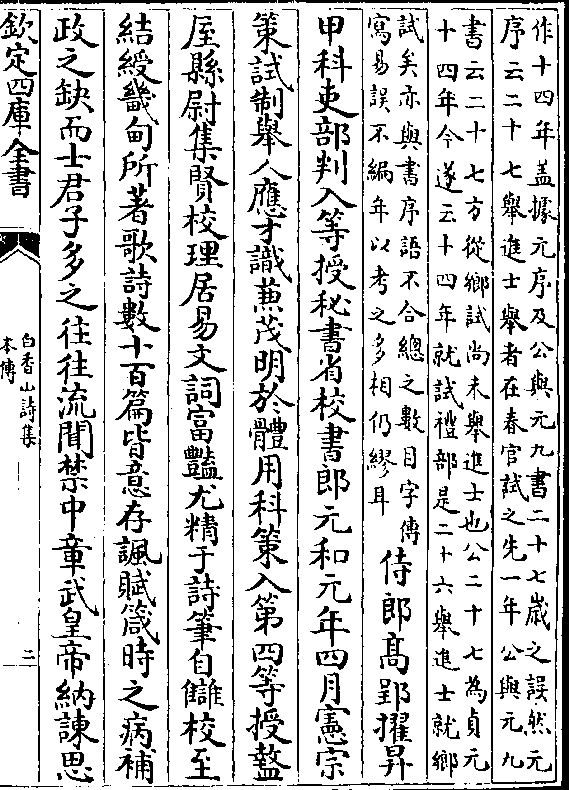 作十四年盖據元序及公與元九書二十七歲之誤然元
序云二十七舉進士舉者在春官試之先一年公與元九
書云二十七方從鄉試尚未舉進士也公二十七為貞元
十四年今遂云十四年就試禮部是二十六舉進士就鄉
試矣亦與書序語不合總之數目字傳
寫易誤不編年以考之多相仍繆耳
侍郎髙郢擢昇
甲科吏部判入等授秘書省校書郎元和元年四月憲宗
策試制舉人應才識兼茂明於體用科策入第四等授盩
厔縣尉集賢校理居易文詞富豔尤精于詩筆自讎校至
結綬畿甸所著歌詩數十百篇皆意存諷賦箴時之病補
政之缺而士君子多之往往流聞禁中章武皇帝納諫思
欽定四庫全書
白香山詩集
本傳
二